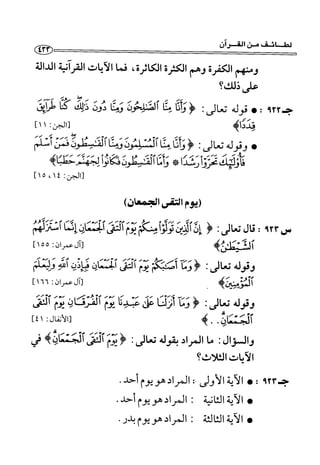 لطائف من القرآن
٤٣٣
ومنهم الكفرة وهم الكثرة الكاثرة، فما الآيات القرآنية الدالة
على ذلك؟
جـ ٩٢٢ : * قوله تعالى : ﴿ وَأَنَّا مِنَّا ٱلصَّٰلِحُونَ وَمِنَّا دُونَ ذَٰلِكَ كُنَّا طَرَآئِقَ
قِدَدًا﴾ [الجن: ١١]
* وقوله تعالى : ﴿ وَأَنَّا مِنَّا ٱلْمُسْلِمُونَ وَمِنَّا ٱلْقَٰسِطُونَ فَمَنْ أَسْلَمَ
فَأُوْلَٰٓئِكَ تَحَرَّوْاْ رَشَدًا * وَأَمَّا ٱلْقَٰسِطُونَ فَكَانُواْ لِجَهَنَّمَ حَطَبًا﴾
[الجن: ١٤، ١٥]
(يوم التقى الجمعان)
س ٩٢٣ : قال تعالى : ﴿ إِنَّ ٱلَّذِينَ تَوَلَّوْاْ مِنكُمْ يَوْمَ ٱلْتَقَى ٱلْجَمْعَانِ إِنَّمَا ٱسْتَزَلَّهُمُ
ٱلشَّيْطَٰنُ﴾ [آل عمران: ١٥٥]
وقوله تعالى : ﴿ وَمَآ أَصَٰبَكُمْ يَوْمَ ٱلْتَقَى ٱلْجَمْعَانِ فَبِإِذْنِ ٱللَّهِ وَلِيَعْلَمَ
ٱلْمُؤْمِنِينَ﴾ [آل عمران: ١٦٦]
وقوله تعالى : ﴿ وَمَآ أَنزَلْنَا عَلَىٰ عَبْدِنَا يَوْمَ ٱلْفُرْقَانِ يَوْمَ ٱلْتَقَى
ٱلْجَمْعَانِ . . ﴾ [الأنفال: ٤١]
والسؤال : ما المراد بقوله تعالى : ﴿ يَوْمَ ٱلْتَقَى ٱلْجَمْعَانِ﴾ في
الآيات الثلاث؟
جـ ٩٢٣ : * الآية الأولى : المراد هو يوم أحد.
* الآية الثانية : المراد هو يوم أحد.
* الآية الثالثة : المراد هو يوم بدر.